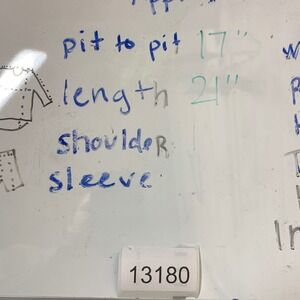 pit to pit 17"
length 21"
shoulder
sleeve
13180